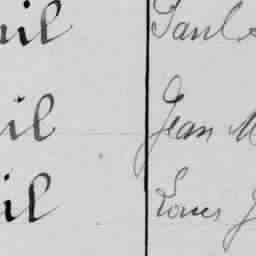 il Paul
il Jean M
il Louis J